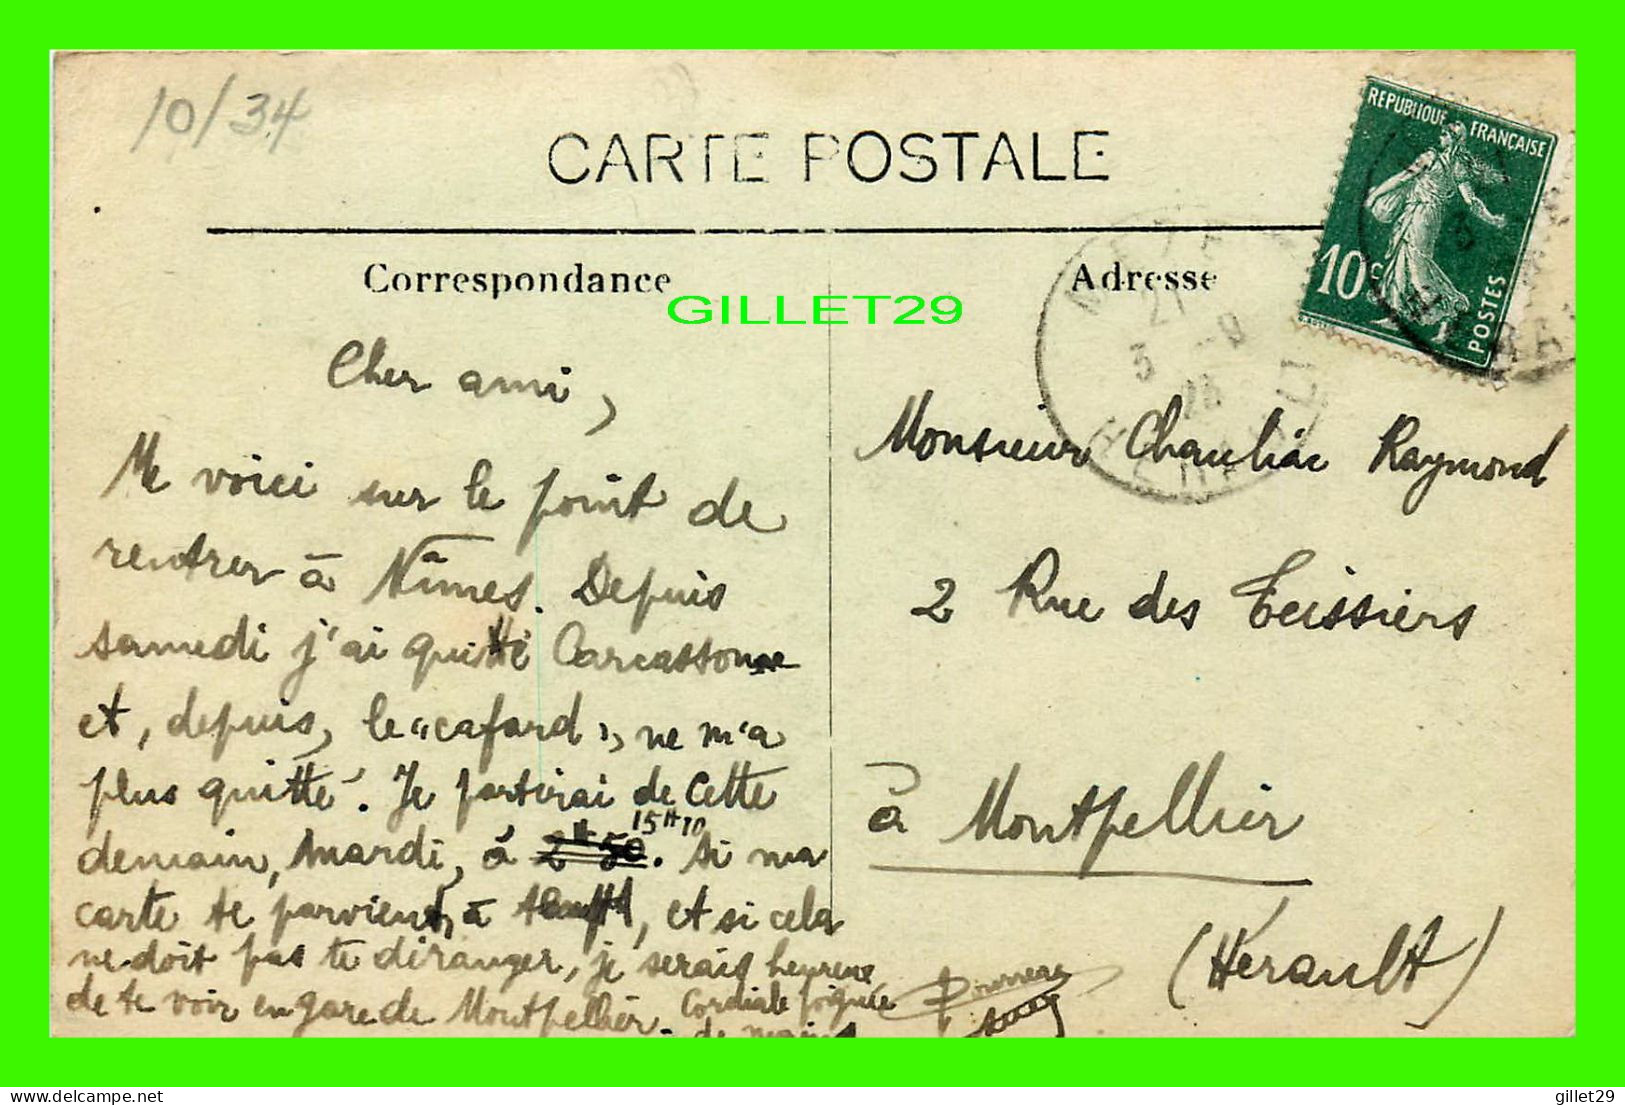 10/34
CARTE POSTALE
REPUBLIQUE FRANÇAISE
10c
POSTES
Correspondance
Adresse
GILLET29
21
3 -9
Cher ami,
Me voici sur le point de
rentrer à Nîmes. Depuis
samedi j'ai quitté Carcassonne
et, depuis, le "cafard" ne m'a
plus quitté. Je partirai de Cette
demain, mardi, à 2H 50. 15H10 Si ma
carte te parvient à, et si cela
ne doit pas te déranger, je serais heureux
de te voir en gare de Montpellier. Cordiale poignée
de mains
Monsieur Chauliac Raymond
2 Rue des Teissiers
à Montpellier
(Hérault)
Delcampe.net
gillet29